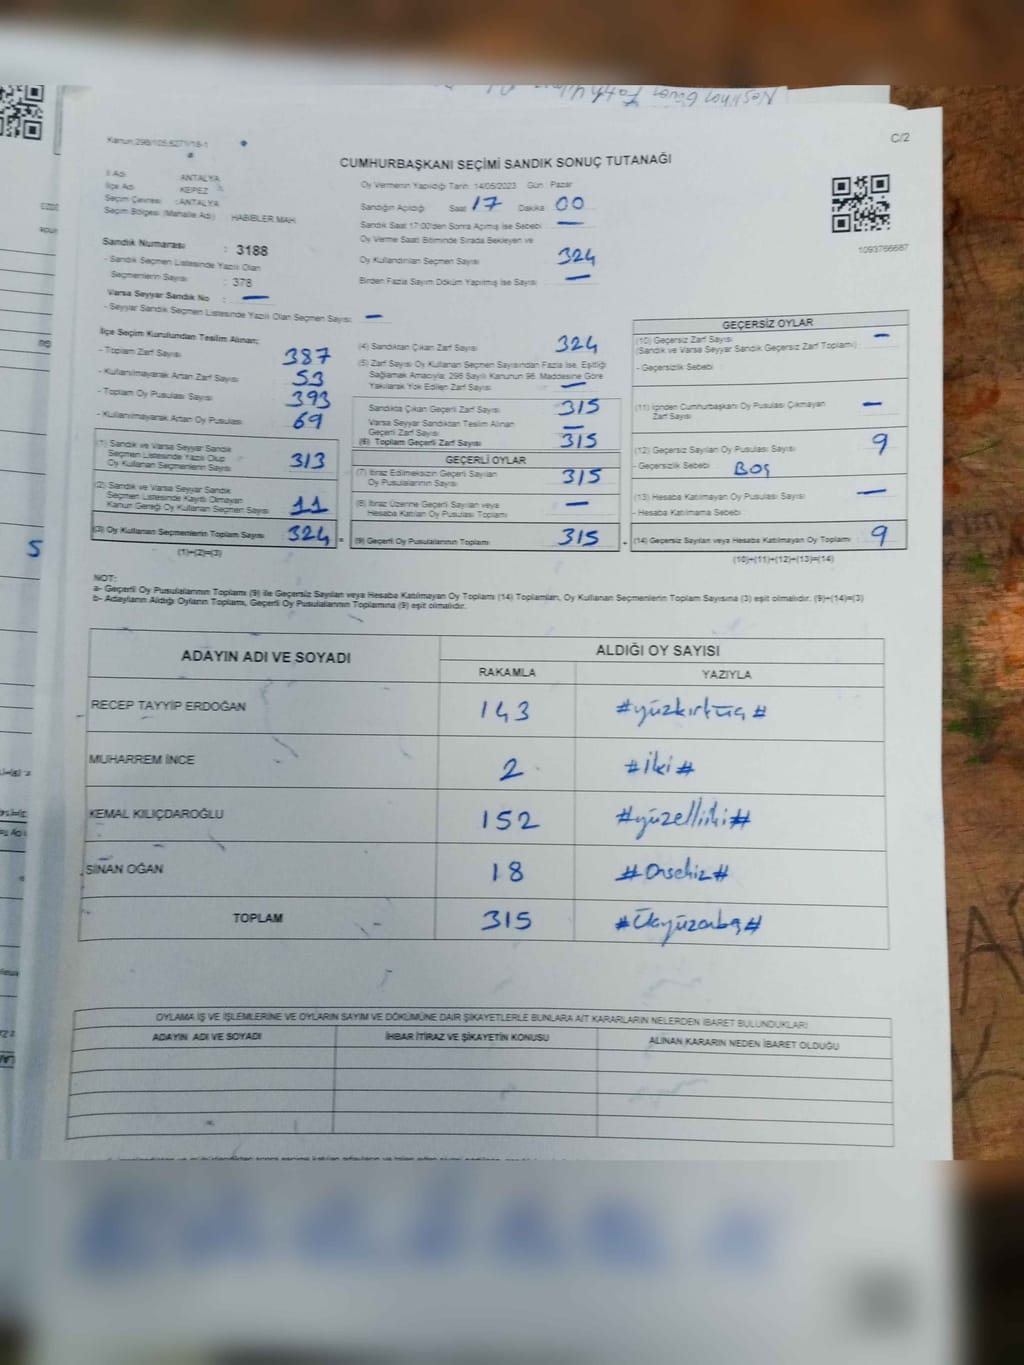 C/2
CUMHURBAŞKANI SEÇİMİ SANDIK SONUÇ TUTANAĞI
İl Adı : ANTALYA
İlçe Adı : KEPEZ
Seçim Çevresi : ANTALYA
Seçim Bölgesi (Mahalle Adı) : HABİBLER MAH.
Sandık Numarası : 3188
- Sandık Seçmen Listesinde Yazılı Olan
Seçmenlerin Sayısı : 378
Varsa Seyyar Sandık No : —
- Seyyar Sandık Seçmen Listesinde Yazılı Olan Seçmen Sayısı: —
Oy Vermenin Yapıldığı Tarih: 14/05/2023 Gün : Pazar
Sandığın Açıldığı Saat 17 Dakika 00
Sandık Saat 17:00'den Sonra Açılmış İse Sebebi —
Oy Verme Saati Bitiminde Sırada Bekleyen ve
Oy Kullandırılan Seçmen Sayısı 324
Birden Fazla Sayım Döküm Yapılmış İse Sayısı —
1093766687
İlçe Seçim Kurulundan Teslim Alınan;
- Toplam Zarf Sayısı 387
- Kullanılmayarak Artan Zarf Sayısı 53
- Toplam Oy Pusulası Sayısı 393
- Kullanılmayarak Artan Oy Pusulası 69
(1) Sandık ve Varsa Seyyar Sandık
Seçmen Listesinde Yazılı Olup
Oy Kullanan Seçmenlerin Sayısı 313
(2) Sandık ve Varsa Seyyar Sandık
Seçmen Listesinde Kayıtlı Olmayan
Kanun Gereği Oy Kullanan Seçmen Sayısı 11
(3) Oy Kullanan Seçmenlerin Toplam Sayısı 324 =
(1)+(2)=(3)
(4) Sandıktan Çıkan Zarf Sayısı 324
(5) Zarf Sayısı Oy Kullanan Seçmen Sayısından Fazla İse, Eşitliği
Sağlamak Amacıyla; 298 Sayılı Kanunun 98. Maddesine Göre
Yakılarak Yok Edilen Zarf Sayısı —
Sandıkta Çıkan Geçerli Zarf Sayısı 315
Varsa Seyyar Sandıktan Teslim Alınan
Geçerli Zarf Sayısı —
(6) Toplam Geçerli Zarf Sayısı 315
GEÇERLİ OYLAR
(7) İtiraz Edilmeksizin Geçerli Sayılan
Oy Pusulalarının Sayısı 315
(8) İtiraz Üzerine Geçerli Sayılan veya
Hesaba Katılan Oy Pusulası Toplamı —
(9) Geçerli Oy Pusulalarının Toplamı 315 +
GEÇERSİZ OYLAR
(10) Geçersiz Zarf Sayısı —
(Sandık ve Varsa Seyyar Sandık Geçersiz Zarf Toplamı)
- Geçersizlik Sebebi
(11) İçinden Cumhurbaşkanı Oy Pusulası Çıkmayan
Zarf Sayısı —
(12) Geçersiz Sayılan Oy Pusulası Sayısı 9
- Geçersizlik Sebebi BOŞ
(13) Hesaba Katılmayan Oy Pusulası Sayısı —
- Hesaba Katılmama Sebebi
(14) Geçersiz Sayılan veya Hesaba Katılmayan Oy Toplamı 9
(10)+(11)+(12)+(13)=(14)
NOT:
a- Geçerli Oy Pusulalarının Toplamı (9) ile Geçersiz Sayılan veya Hesaba Katılmayan Oy Toplamı (14) Toplamları, Oy Kullanan Seçmenlerin Toplam Sayısına (3) eşit olmalıdır. (9)+(14)=(3)
b- Adayların Aldığı Oyların Toplamı, Geçerli Oy Pusulalarının Toplamına (9) eşit olmalıdır.
ADAYIN ADI VE SOYADI ALDIĞI OY SAYISI
RAKAMLA YAZIYLA
RECEP TAYYİP ERDOĞAN 143 #yüzkırküç#
MUHARREM İNCE 2 #İki#
KEMAL KILIÇDAROĞLU 152 #yüzelliiki#
SİNAN OĞAN 18 #Onsekiz#
TOPLAM 315 #Üçyüzonbeş#
OYLAMA İŞ VE İŞLEMLERİNE VE OYLARIN SAYIM VE DÖKÜMÜNE DAİR ŞİKAYETLERLE BUNLARA AİT KARARLARIN NELERDEN İBARET BULUNDUKLARI
ADAYIN ADI VE SOYADI İHBAR İTİRAZ VE ŞİKAYETİN KONUSU ALINAN KARARIN NEDEN İBARET OLDUĞU
5